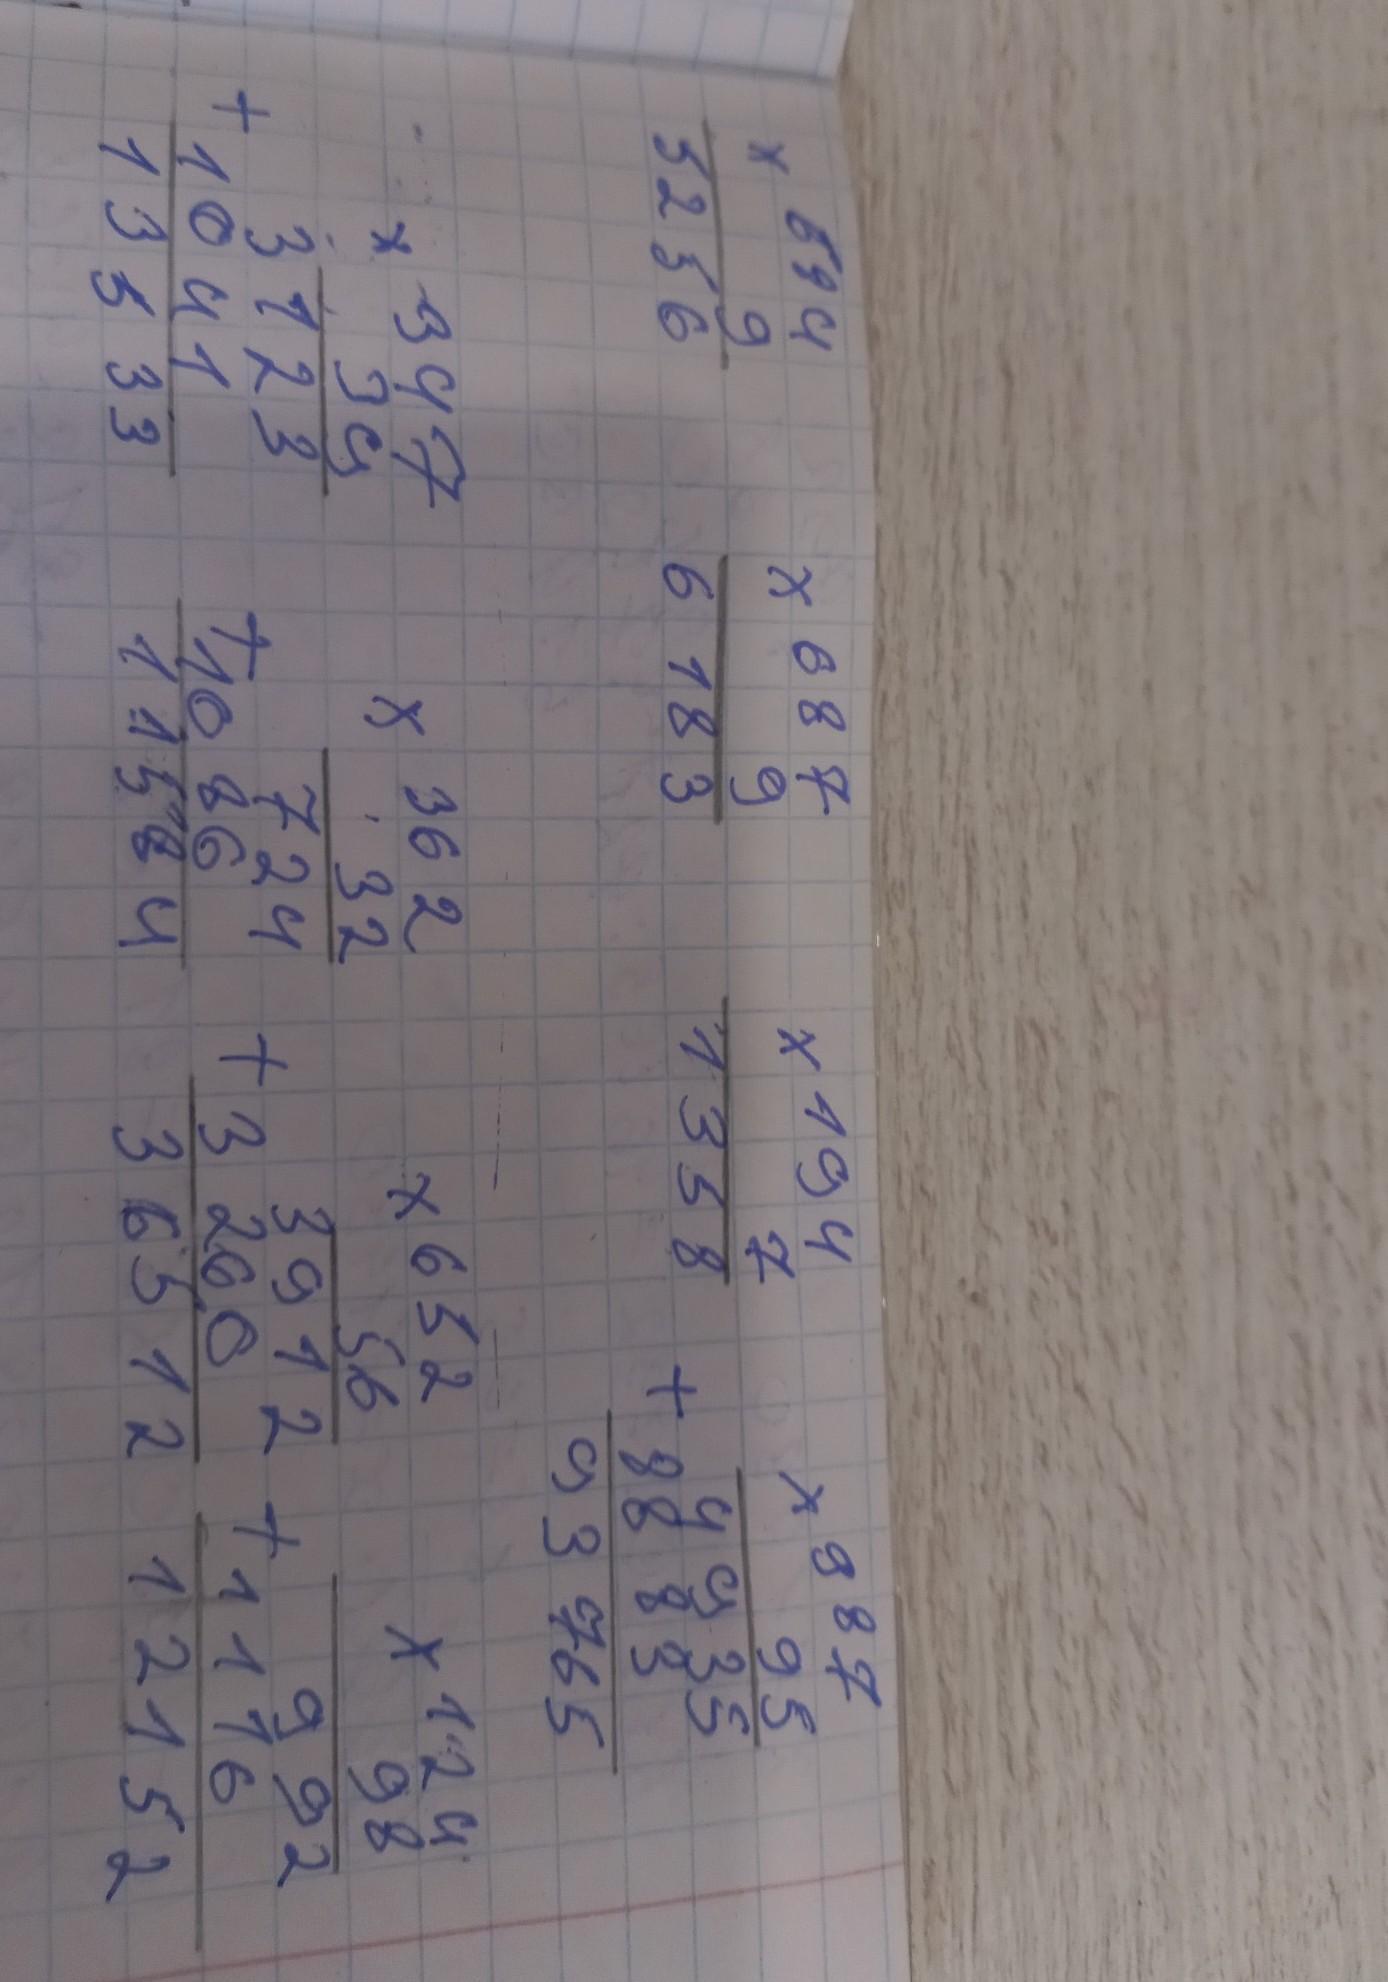 × 584
9
5256
× 687
9
6183
× 194
7
1358
× 987
95
4935
+ 8883
93765
× 347
39
3123
+ 1041
13533
× 362
32
724
+ 1086
11584
× 652
56
3912
+ 3260
36512
× 124
98
992
+ 1116
12152